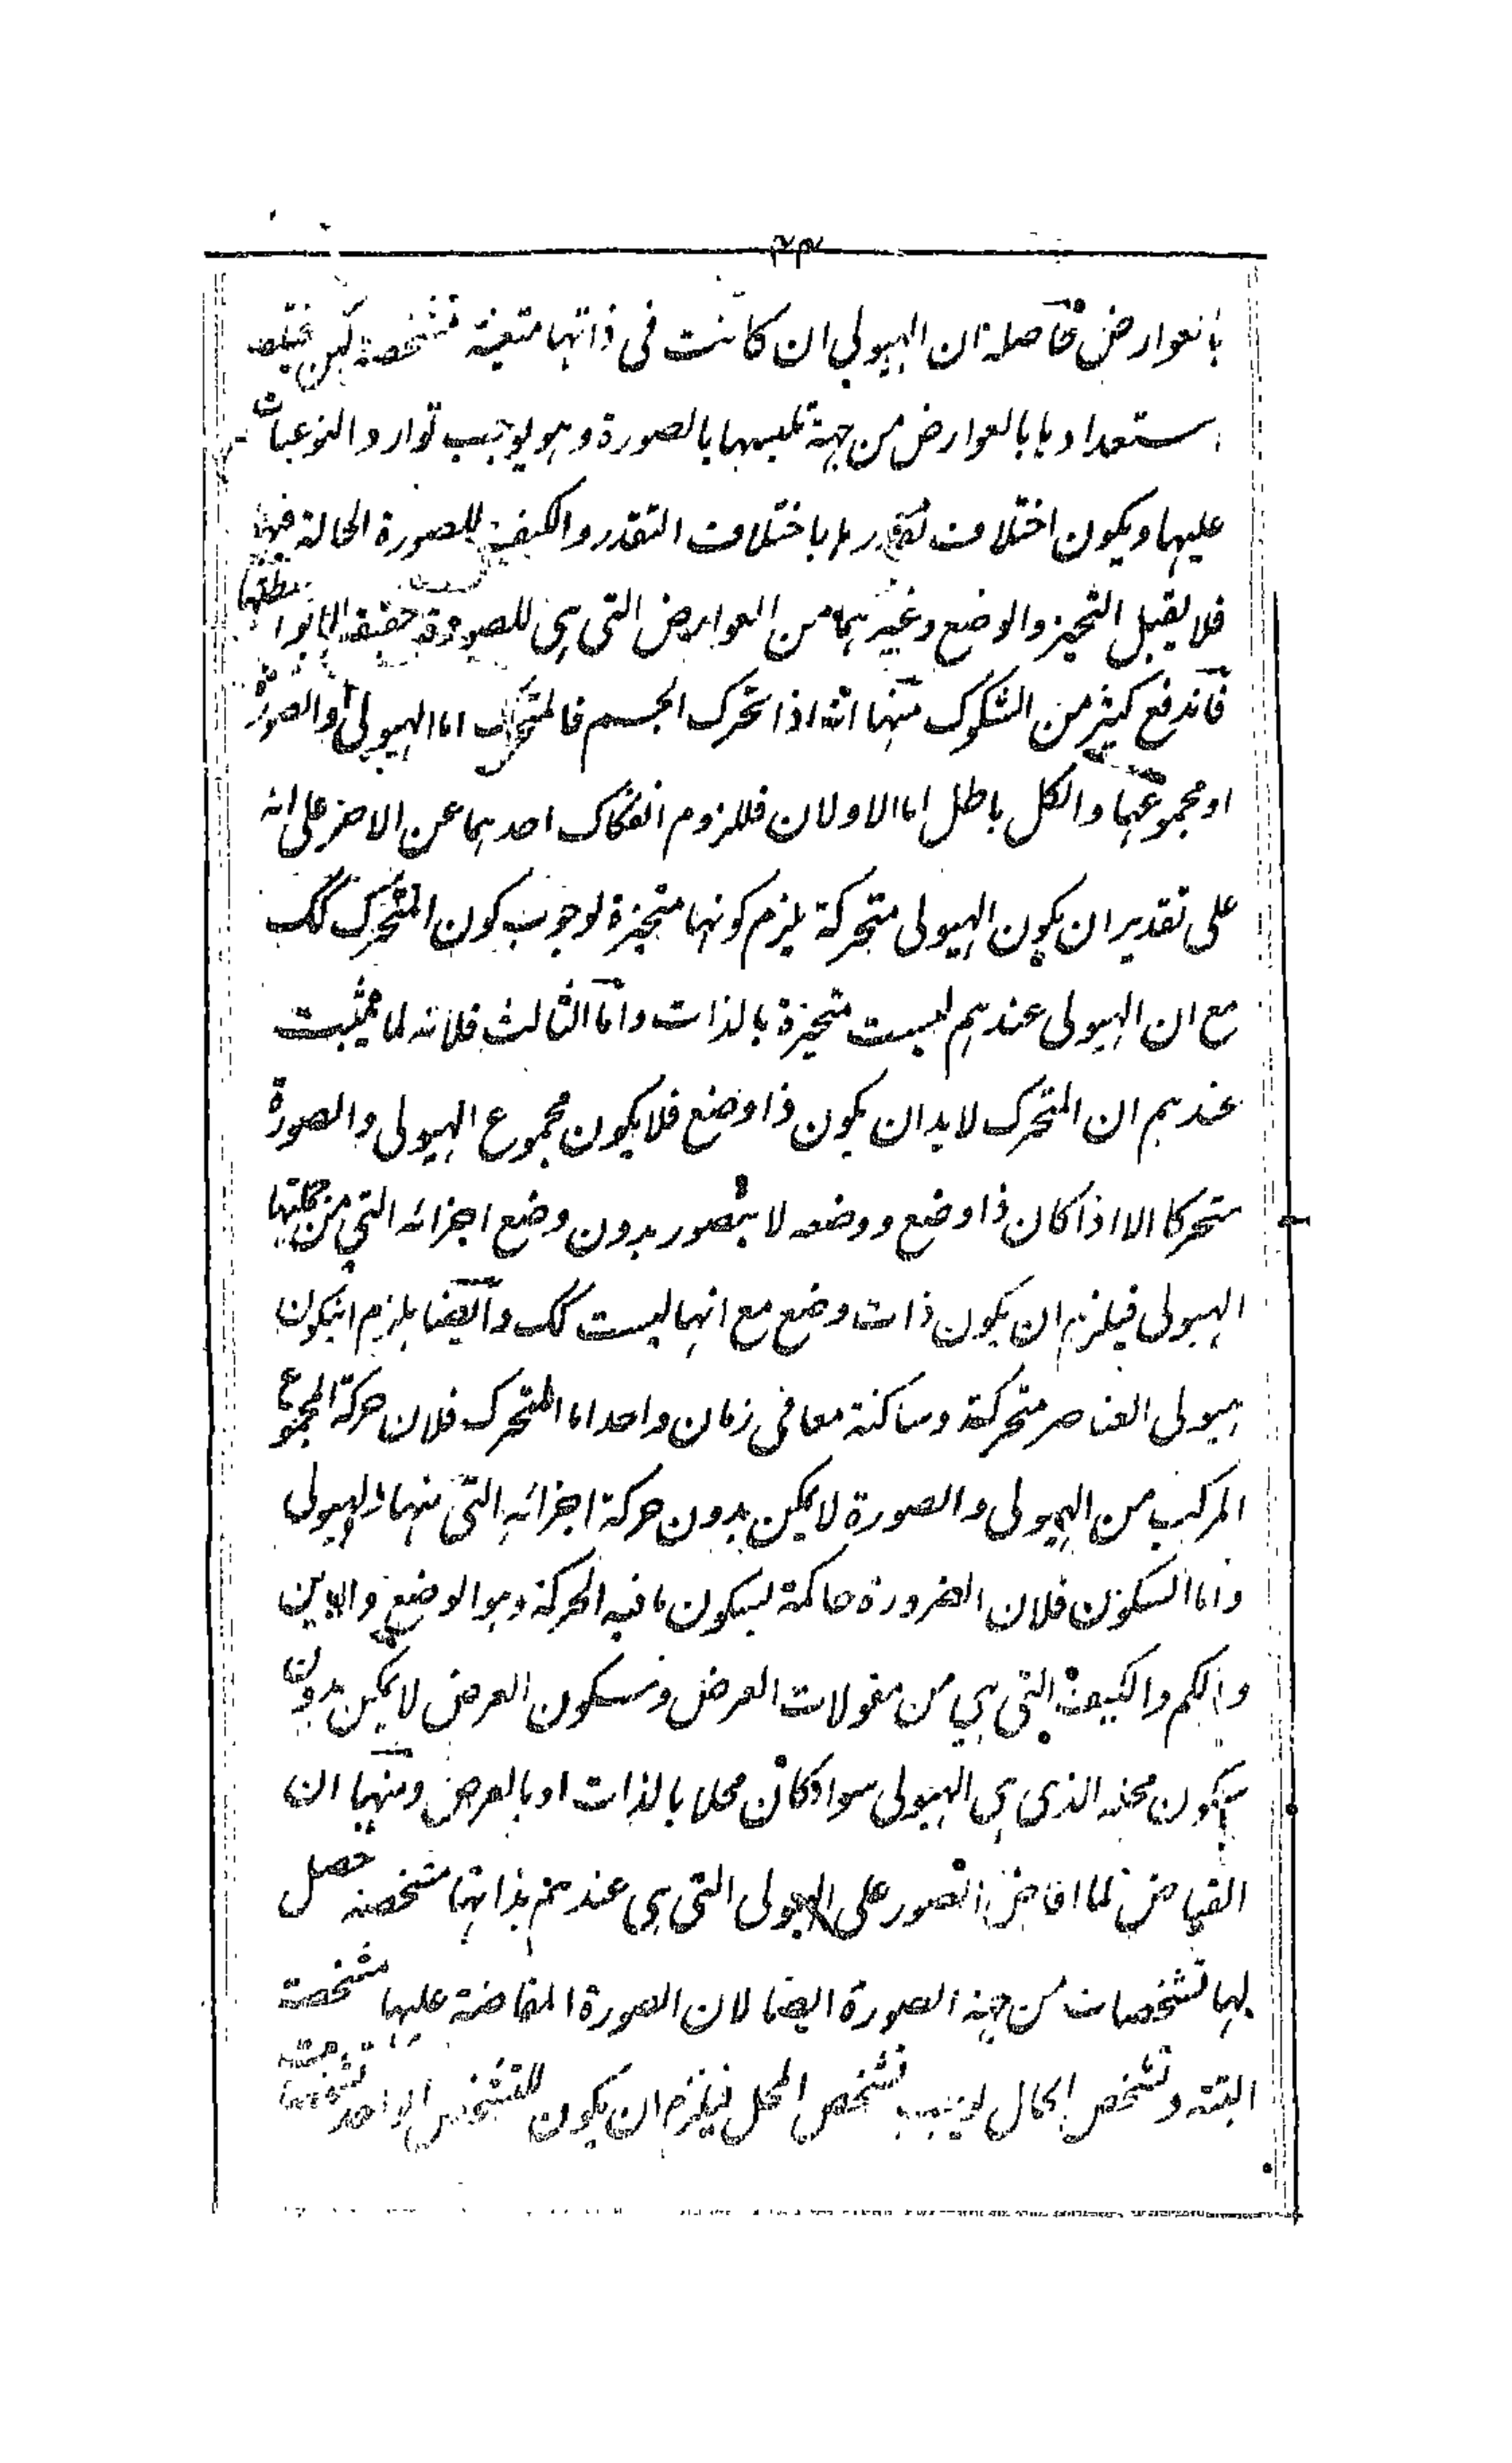 بالعوارض فحاصله ان الهيولى ان كانت فى ذاتها متعينة متشخصة لكن يختلف
استعدادها بالعوارض من جهة تلبسها بالصورة وهو يوجب توارد النوعيات
عليها ويكون اختلاف تقدرها باختلاف التقدر والكيفية للصورة الحالة فيها
فلا يقبل التحيز والوضع وغيرهما من العوارض التى هى للصورة حقيقة
فاندفع كثير من الشكوك منها انه اذا تحرك الجسم فالمتحرك اما الهيولى او الصورة
او مجموعهما والكل باطل اما الاولان فللزوم انفكاك احدهما عن الاخر على انه
على تقدير ان يكون الهيولى متحركة يلزم كونها متحيزة لوجوب كون المتحرك كك
مع ان الهيولى عندهم ليست متحيزة بالذات واما الثالث فلانه لما يثبت
عندهم ان المتحرك لابد ان يكون ذا وضع فلا يكون مجموع الهيولى والصورة
متحركا الا اذا كان ذا وضع ووضعه لا يتصور بدون وضع اجزائه التى من جملتها
الهيولى فيلزم ان يكون ذات وضع مع انها ليست كك وايضا يلزم ان يكون
هيولى العناصر متحركة وساكنة معا فى زمان واحد اما المتحرك فلان حركة المجموع
المركب من الهيولى والصورة لا يمكن بدون حركة اجزائه التى منها الهيولى
واما السكون فلان الضرورة حاكمة بسكون ما فيه الحركة وهو الوضع والاين
والكم والكيف التى هى من مقولات العرض وسكون العرض لا يمكن بدون
سكون محله الذى هى الهيولى سواء كان محلا بالذات او بالعرض ومنها ان
الفياض لما افاض الصور على الهيولى التى هى عندهم بذاتها متشخصة حصل
لها تشخصات من جهة الصورة ايضا لان الصورة المفاضة عليها متشخصة
البتة وتشخص الحال يوجب تشخص المحل فيلزم ان يكون للشخص الواحد تشخصات